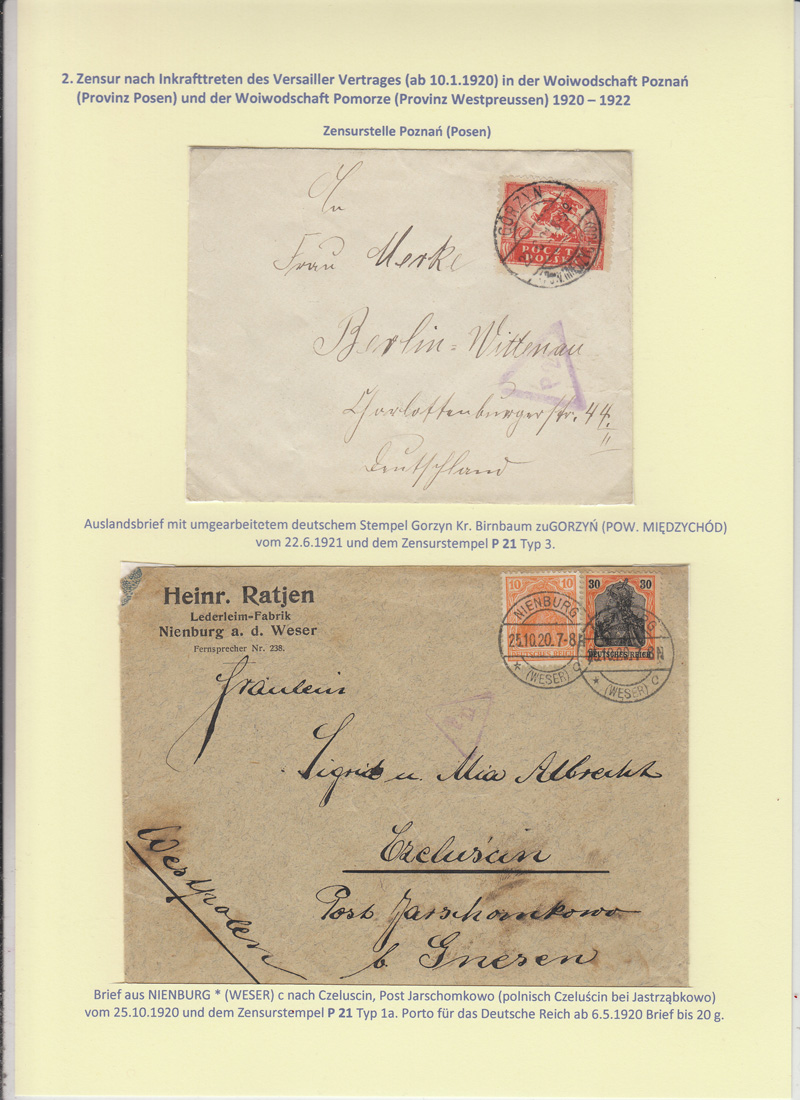 2. Zensur nach Inkrafttreten des Versailler Vertrages (ab 10.1.1920) in der Woiwodschaft Poznań
(Provinz Posen) und der Woiwodschaft Pomorze (Provinz Westpreussen) 1920 – 1922
Zensurstelle Poznań (Posen)
An
Frau Merke
Berlin-Wittenau
Charlottenburgerstr. 44.
II
Deutschland
GORZYN
POCZTA
POLSKA
Auslandsbrief mit umgearbeitetem deutschem Stempel Gorzyn Kr. Birnbaum zuGORZYŃ (POW. MIĘDZYCHÓD)
vom 22.6.1921 und dem Zensurstempel P 21 Typ 3.
Heinr. Ratjen
Lederleim-Fabrik
Nienburg a. d. Weser
Fernsprecher Nr. 238.
10 10
DEUTSCHES REICH
30 30
DEUTSCHES REICH
NIENBURG
25.10.20.7-8N
* (WESER) c
NIENBURG
25.10.20.7-8N
* (WESER) c
Fräulein
Sigrid u. Mia Albrecht
Czeluścin
Post Jarschomkowo
b. Gnesen
Westpolen
Brief aus NIENBURG * (WESER) c nach Czeluscin, Post Jarschomkowo (polnisch Czeluścin bei Jastrząbkowo)
vom 25.10.1920 und dem Zensurstempel P 21 Typ 1a. Porto für das Deutsche Reich ab 6.5.1920 Brief bis 20 g.